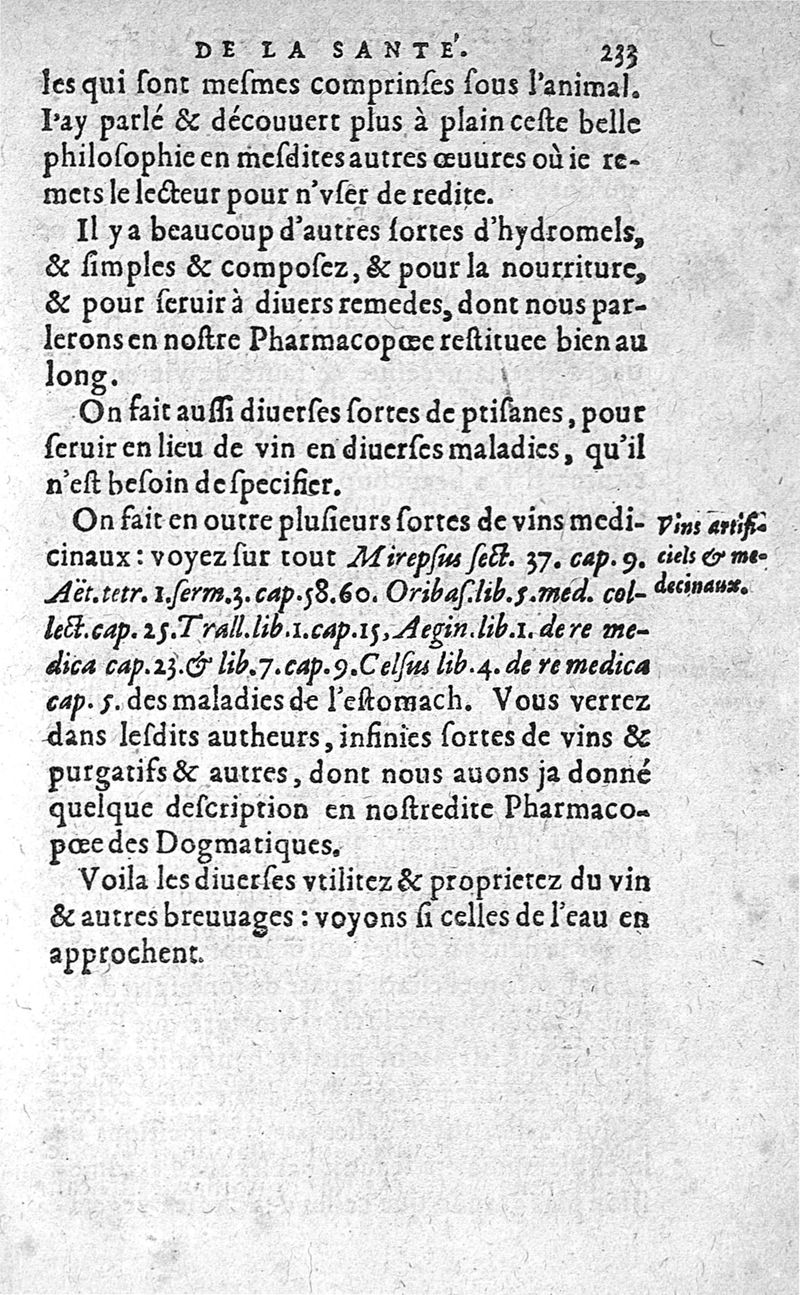 DE LA SANTÉ. 233
les qui ſont meſmes comprinſes ſous l'animal.
I'ay parlé & découuert plus à plain ceſte belle
philoſophie en meſdites autres œuures où ie re-
mets le lecteur pour n'vſer de redite.
Il y a beaucoup d'autres ſortes d'hydromels,
& ſimples & compoſez, & pour la nourriture,
& pour ſeruir à diuers remedes, dont nous par-
lerons en noſtre Pharmacopœe reſtituee bien au
long.
On fait auſſi diuerſes ſortes de ptiſanes, pour
ſeruir en lieu de vin en diuerſes maladies, qu'il
n'eſt beſoin de ſpecifier.
On fait en outre pluſieurs ſortes de vins medi-
cinaux: voyez ſur tout Mirepſus ſect. 37. cap. 9.
Aët. tetr. 1. ſerm. 3. cap. 58. 60. Oribaſ. lib. 5. med. col-
lect. cap. 25. Trall. lib. 1. cap. 15, Aegin. lib. 1. de re me-
dica cap. 23. & lib. 7. cap. 9. Celſus lib. 4. de re medica
cap. 5. des maladies de l'eſtomach. Vous verrez
dans leſdits autheurs, infinies ſortes de vins &
purgatifs & autres, dont nous auons ja donné
quelque deſcription en noſtredite Pharmaco-
pœe des Dogmatiques.
Voila les diuerſes vtilitez & proprietez du vin
& autres breuuages: voyons ſi celles de l'eau en
approchent.
Vins artifi-
ciels & me-
decinaux.